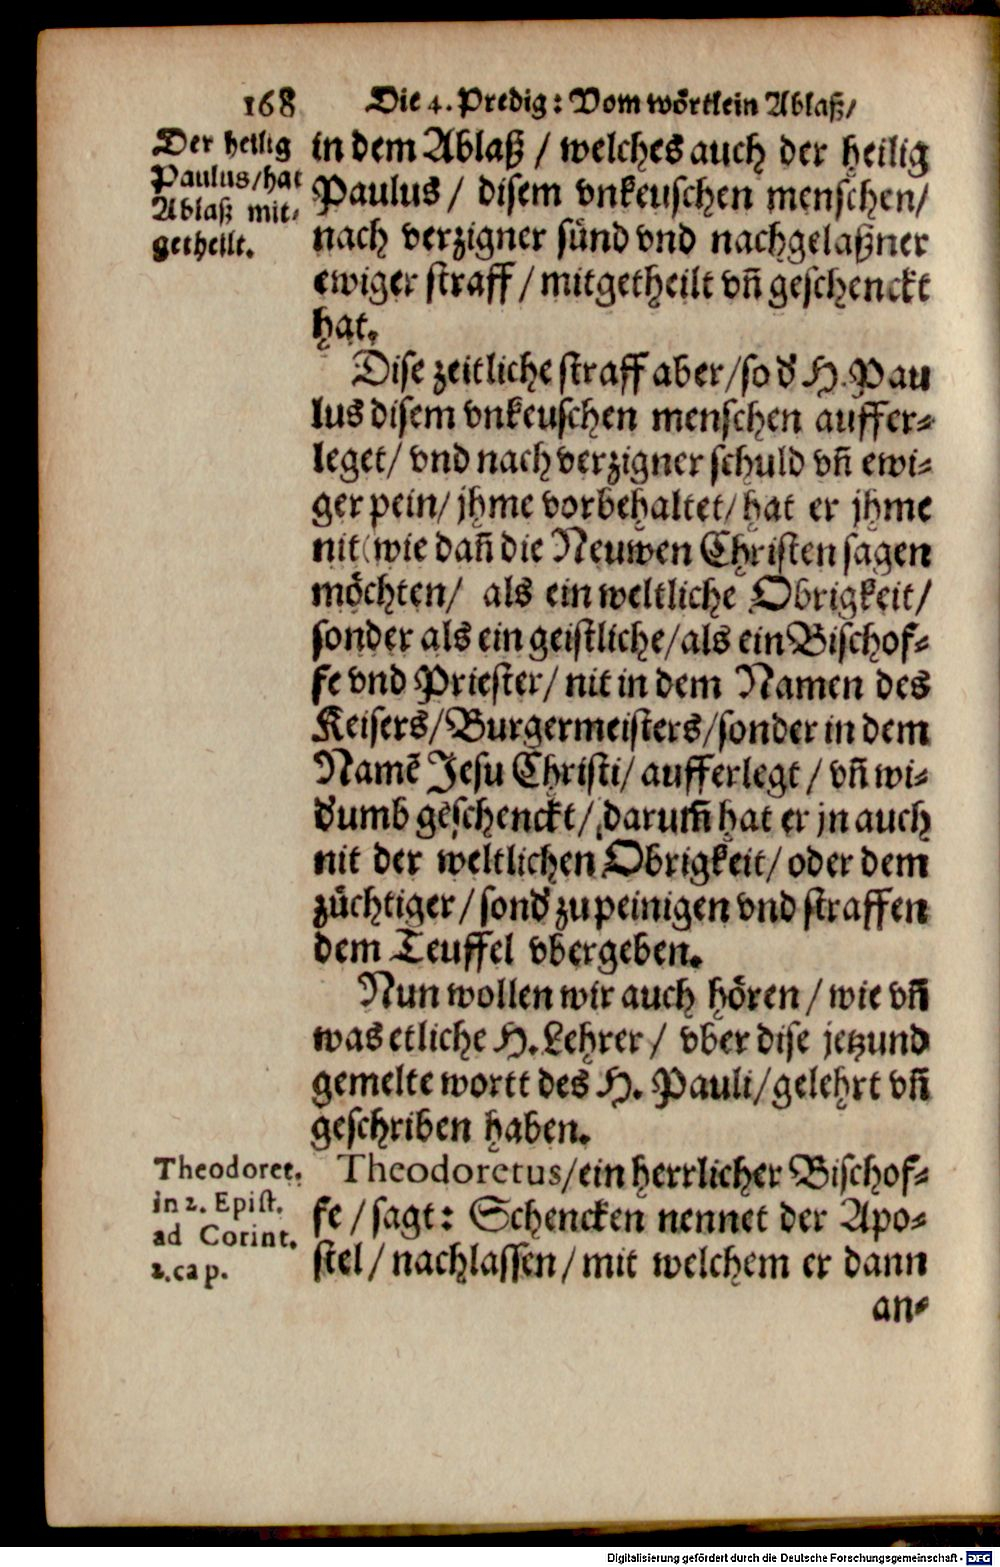 168 Die 4. Predig: Vom wörtlein Ablaß/
Der heilig
Paulus/hat
Ablaß mit-
getheilt.
in dem Ablaß / welches auch der heilig
Paulus / disem vnkeuschen menschen/
nach verzigner sünd vnd nachgelaßner
ewiger straff / mitgetheilt vñ geschenckt
hat.
Dise zeitliche straff aber/so d' H. Pau
lus disem vnkeuschen menschen auffer-
leget/ vnd nach verzigner schuld vñ ewi-
ger pein/ jhme vorbehaltet/ hat er jhme
nit (wie dañ die Neuwen Christen sagen
möchten/ als ein weltliche Obrigkeit/
sonder als ein geistliche/als ein Bischof-
fe vnd Priester/ nit in dem Namen des
Keisers/Burgermeisters/sonder in dem
Namē Jesu Christi/ aufferlegt / vñ wi-
d'umb geschenckt/ darum̃ hat er jn auch
nit der weltlichen Obrigkeit/ oder dem
züchtiger/ sond' zu peinigen vnd straffen
dem Teuffel vbergeben.
Nun wollen wir auch hören / wie vñ
was etliche H. Lehrer/ vber dise jetzund
gemelte wortt des H. Pauli/gelehrt vñ
geschriben haben.
Theodoret.
in 2. Epist.
ad Corint.
2. cap.
Theodoretus/ein herrlicher Bischof-
fe / sagt: Schencken nennet der Apo-
stel/ nachlassen/ mit welchem er dann
an-
Digitalisierung gefördert durch die Deutsche Forschungsgemeinschaft - DFG